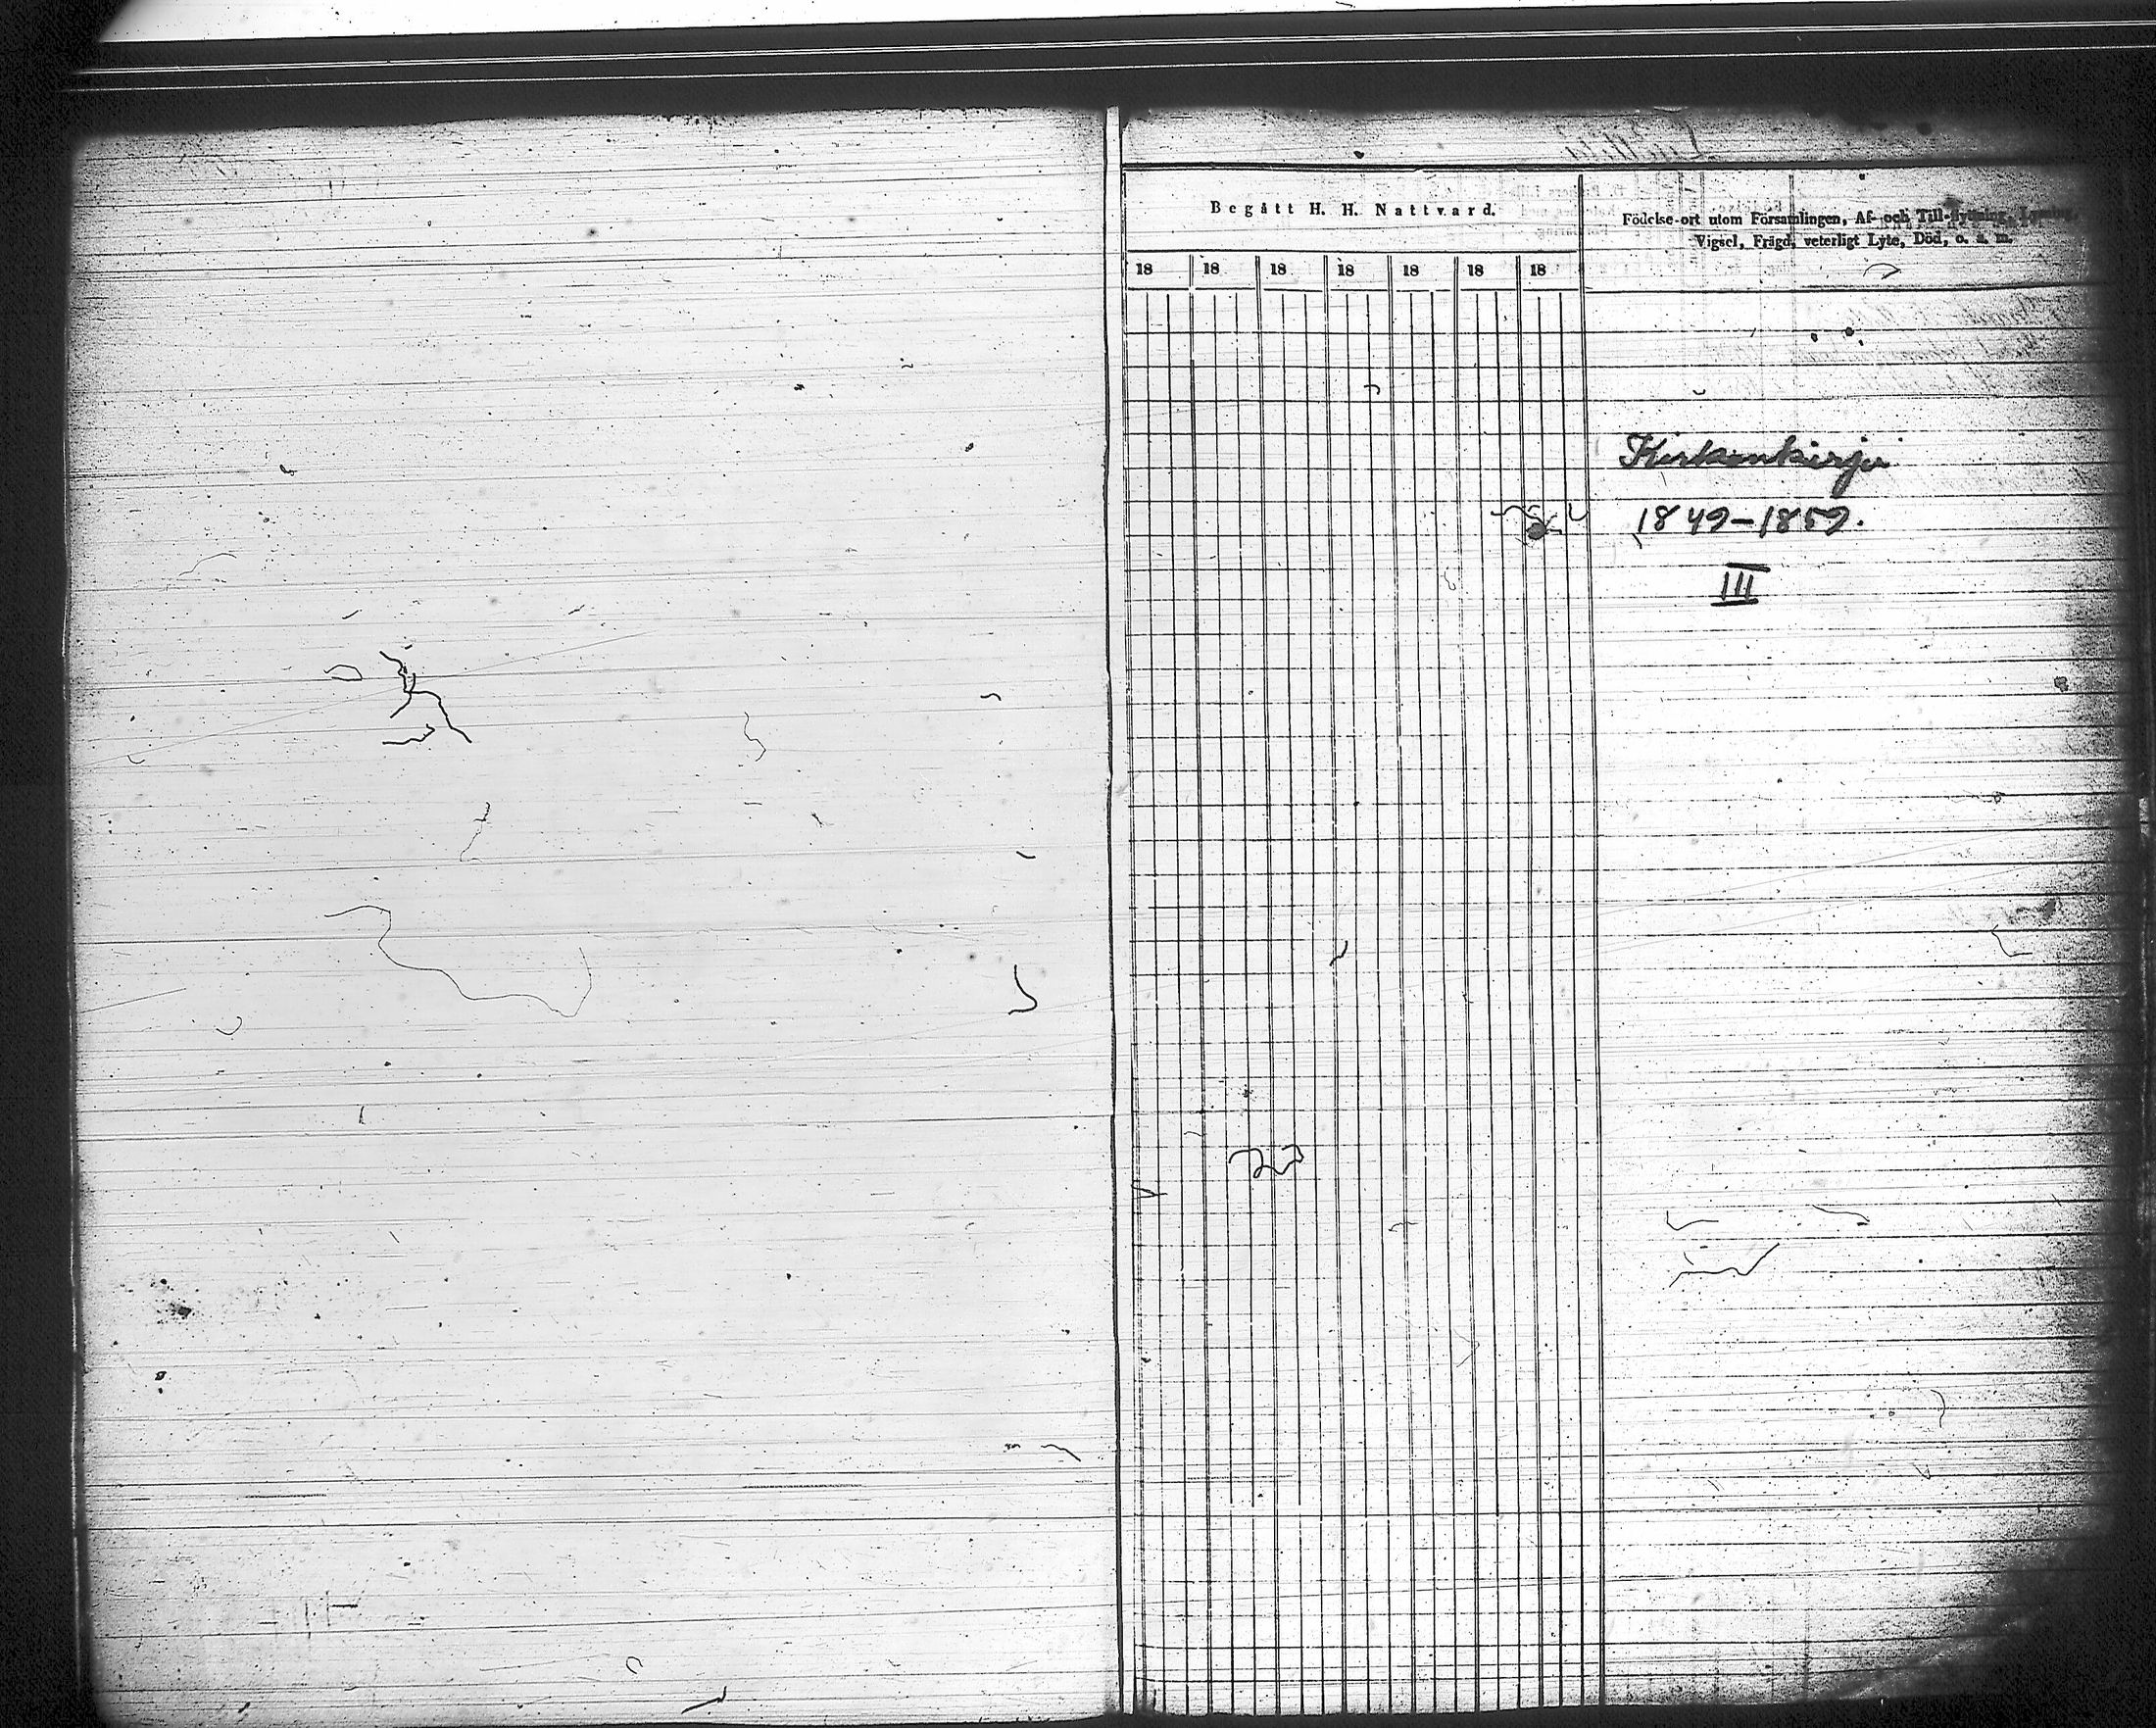 Begått H. H. Nattvard.
Födelse-ort utom Församlingen, Af- och Till-flyttning, Lysning,
Vigsel, Frägd, veterligt Lyte, Död, o. s. m.
18 18 18 18 18 18 18
Kirkonkirja
1849-1859.
III